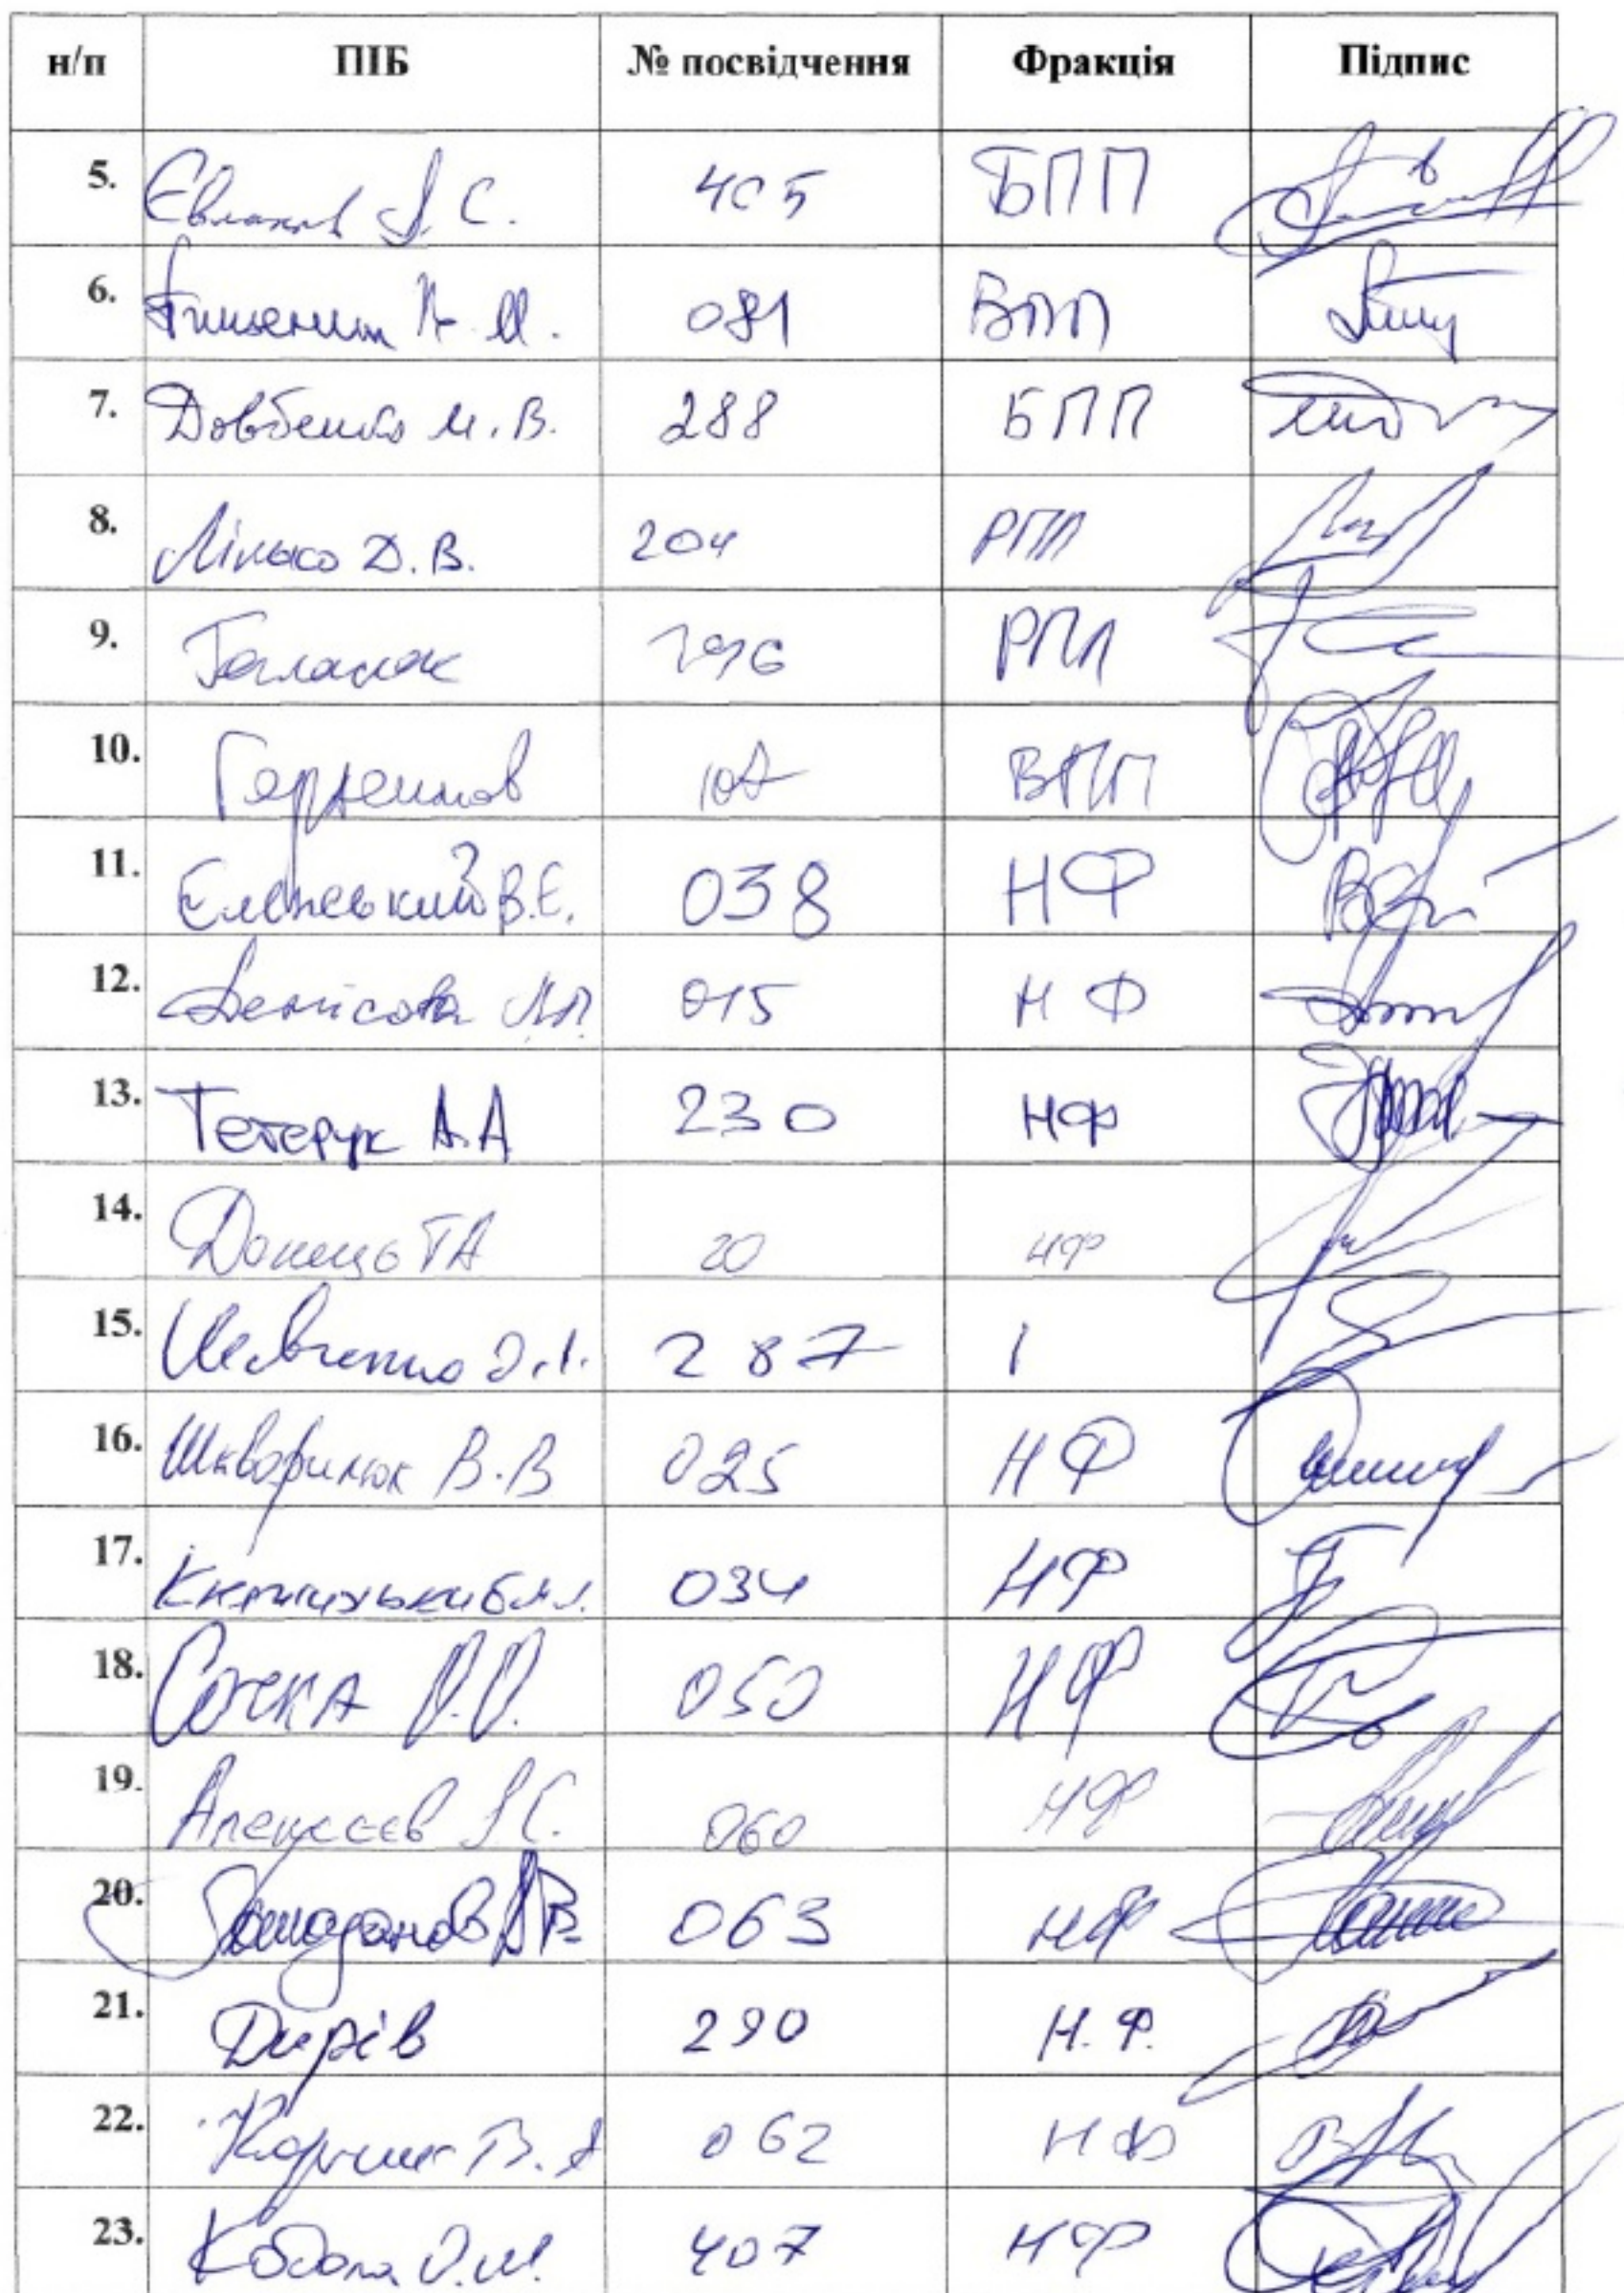 н/п ПІБ № посвідчення Фракція Підпис
5. Євлахов А. С. 405 БПП
6. 081 БПП
7. Довбенко М. В. 288 БПП
8. Лінько Д. В. 204 РПЛ
9. Галасюк 296 РПЛ
10. 107 БПП
11. Єленський В.Є. 038 НФ
12. Денісова Л.Л. 015 НФ
13. Тетерук А.А 230 НФ
14. Донець ТА 20 НФ
15. Шевченко О.Л. 287
16. Шкварилюк В.В 025 НФ
17. 034 НФ
18. Сочка О.О. 050 НФ
19. Алексєєв І.С. 060 НФ
20. Помазанов А.В. 063 НФ
21. Дирів 290 Н.Ф.
22. Корчик В.А 062 НФ
23. Кодола О.М. 407 НФ